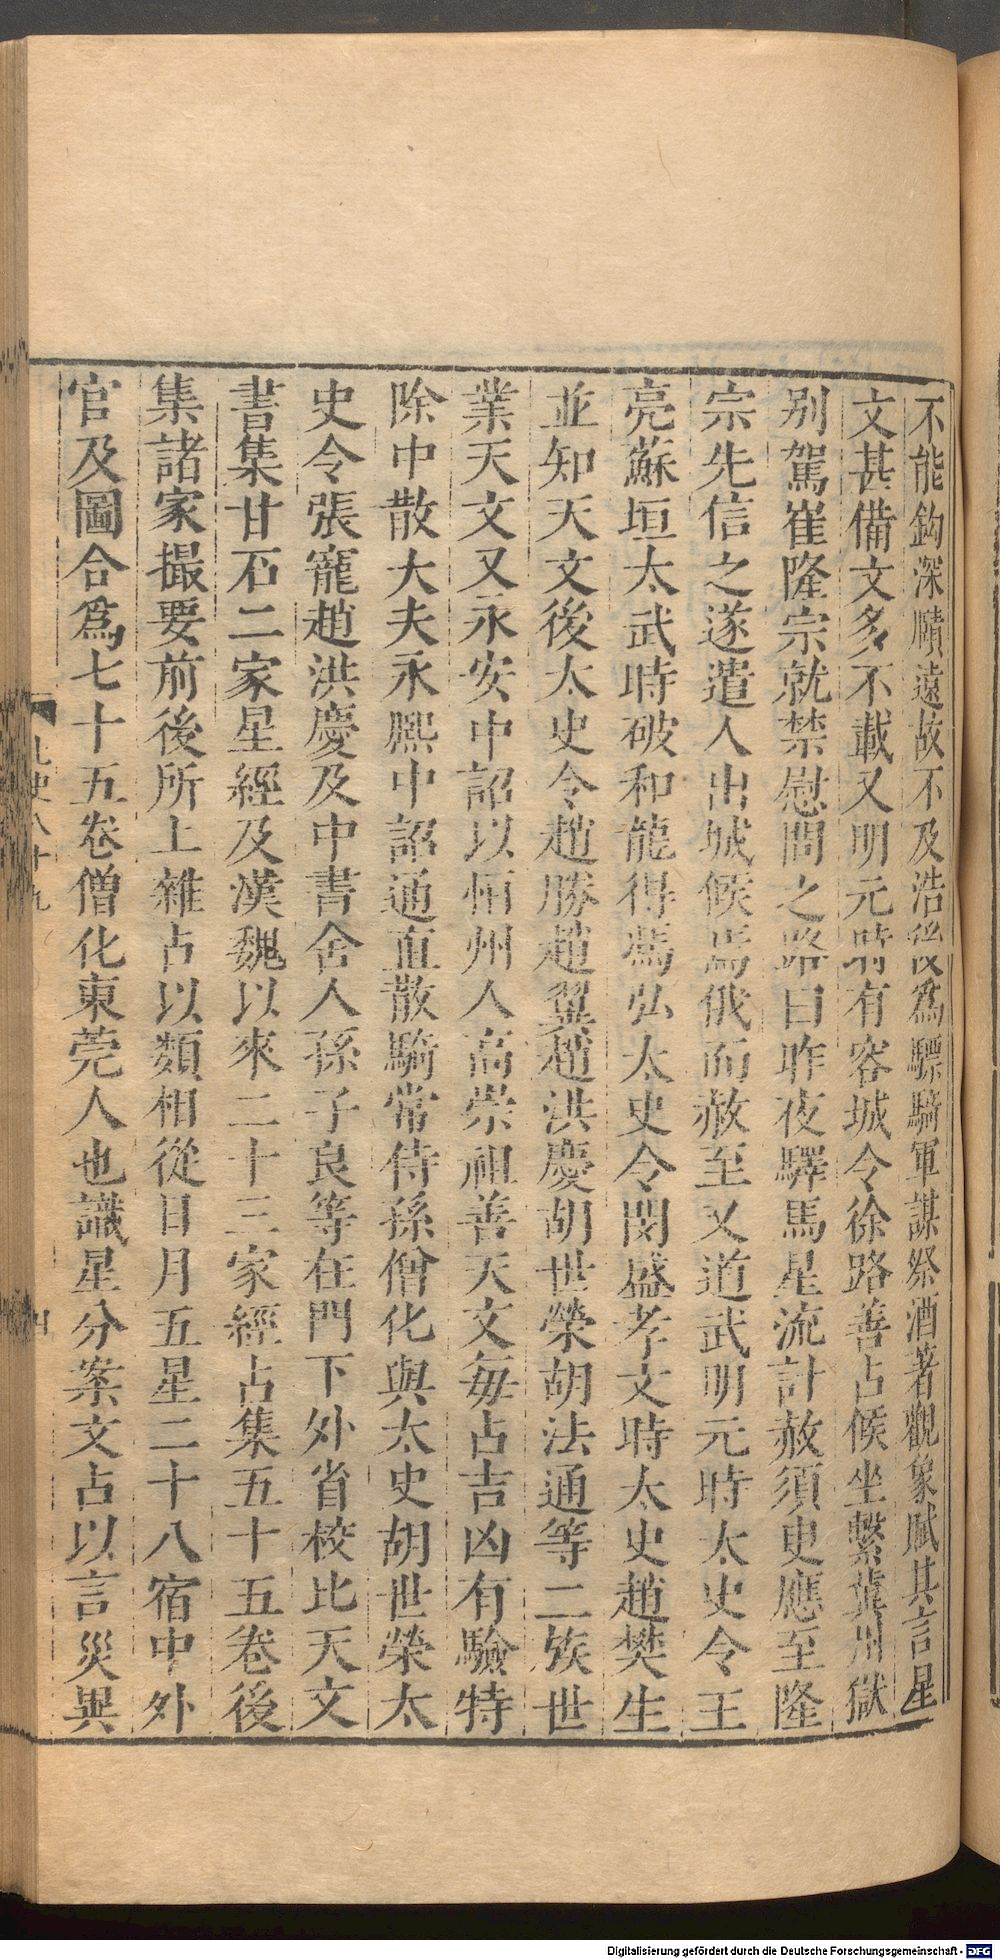 不能鈎深賾遠故不及浩後爲驃騎軍謀祭酒著觀象賦其言星
文甚備文多不載又明元時有容城令徐路善占候坐繫冀州獄
別駕崔隆宗就禁慰問之路曰昨夜驛馬星流計赦須臾應至隆
宗先信之遂遣人出城候焉俄而赦至又道武明元時太史令王
亮蘇垣太武時破和龍得馮弘太史令閔盛孝文時太史趙樊生
並知天文後太史令趙勝趙翼趙洪慶胡世榮胡法通等二族世
業天文又永安中詔以恒州人高崇祖善天文每占吉凶有驗特
除中散大夫永熙中詔通直散騎常侍孫僧化與太史胡世榮太
史令張寵趙洪慶及中書舍人孫子良等在門下外省校比天文
書集甘石二家星經及漢魏以來二十三家經占集五十五卷後
集諸家撮要前後所上雜占以類相從日月五星二十八宿中外
官及圖合爲七十五卷僧化東莞人也識星分案文占以言災異
北史八十九
四
Digitalisierung gefördert durch die Deutsche Forschungsgemeinschaft - DFG